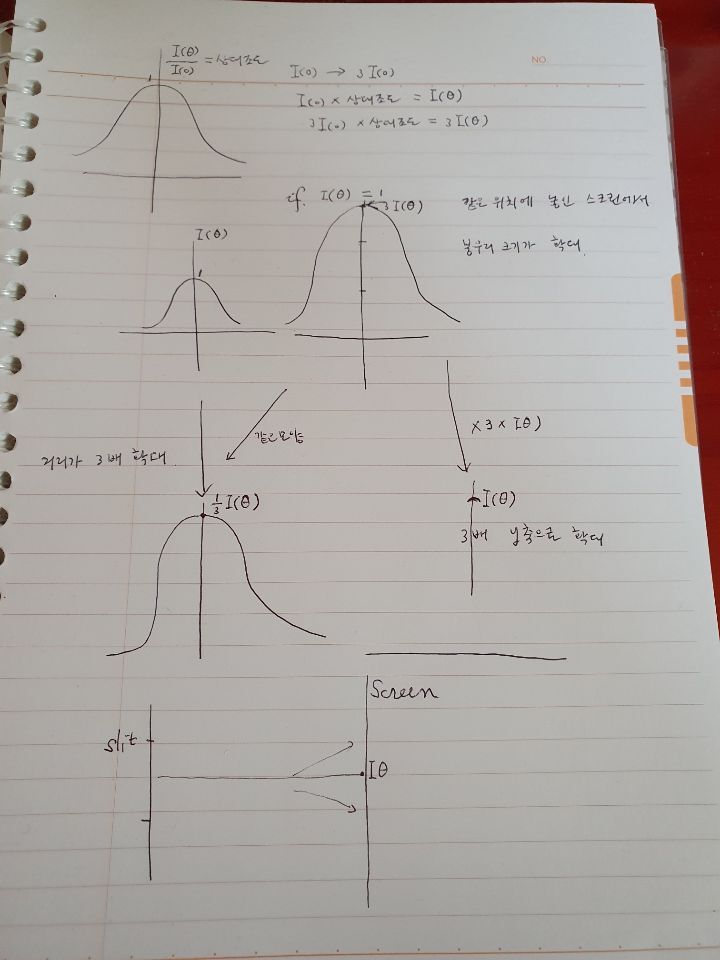 I(θ)/I(0) = 상대조도
1
I(0) → 3 I(0)
NO.
I(0) × 상대조도 = I(θ)
3 I(0) × 상대조도 = 3 I(θ)
if. I(θ) = 1
3 I(θ)
같은 위치에 놓인 스크린에서
봉우리 크기가 확대.
I(θ)
1
거리가 3배 확대.
같은모양
×3× Iθ)
1/3 I(θ)
I(θ)
3배 y축으로 확대
Screen
slit
Iθ